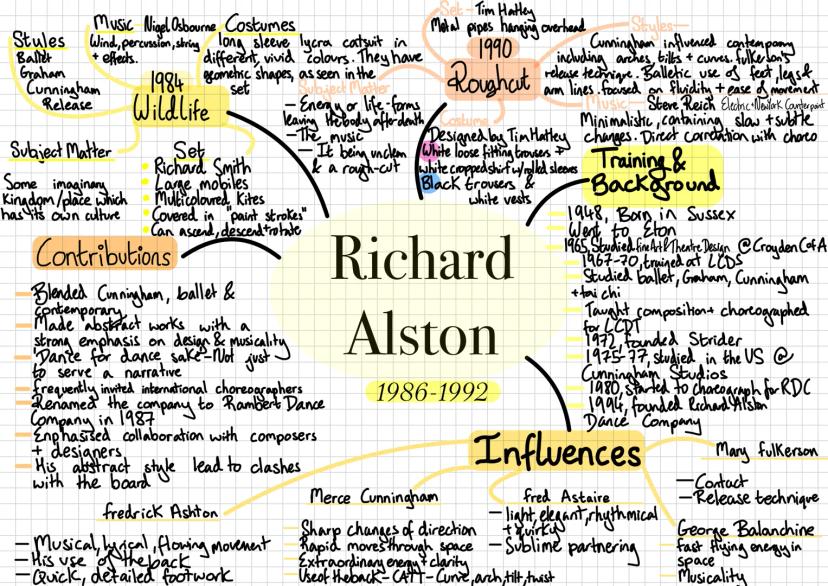 Richard
Alston
1986-1992
1984
Wildlife
Styles
Ballet
Graham
Cunningham
Release
Music - Nigel Osbourne
Wind, percussion, string
+ effects.
Costumes
long sleeve lycra catsuit in
different, vivid colours. They have
geometric shapes, as seen in the
set
Subject Matter
Some imaginary
Kingdom/place which
has its own culture
Set
Richard Smith
Large mobiles
Multicoloured kites
Covered in "paint strokes"
Can ascend, descend + rotate
1990
Roughcut
Set - Tim Hatley
Metal pipes hanging overhead
Styles
Cunningham influenced contemporary
including arches, tilts + curves. fulkerson's
release technique. Balletic use of feet, legs &
arm lines. focused on fluidity + ease of movement
Music - Steve Reich Electric + Newyork Counterpoint
Minimalistic, containing slow + subtle
changes. Direct correlation with choreo
Subject Matter
- Energy or life-forms
leaving the body after death
- The music
- It being unclean
& a rough-cut
Costume
Designed by Tim Hatley
White loose fitting trousers +
white cropped shirt w/ rolled sleeves
Black trousers &
white vests
Training &
Background
1948, Born in Sussex
Went to Eton
1965, Studied fine Art & Theatre Design @ Croydon C of A
1967-70, trained at LCDS
Studied ballet, Graham, Cunningham
+ tai chi
Taught composition + choreographed
for LCDT
1972, founded Strider
1975-77, studied in the US @
Cunningham Studios
1980, started to choreograph for RDC
1994, founded Richard Alston
Dance Company
Contributions
- Blended Cunningham, ballet &
contemporary
- Made abstract works with a
strong emphasis on design & musicality
- 'Dance for dance sake' - Not just
to serve a narrative
- frequently invited international choreographers
- Renamed the company to Rambert Dance
Company in 1987
- Emphasised collaboration with composers
+ designers
- His abstract style lead to clashes
with the board
Influences
fredrick Ashton
- Musical, lyrical, flowing movement
- His use of the back
- Quick, detailed footwork
Merce Cunningham
- Sharp changes of direction
- Rapid moves through space
- Extraordinary energy + clarity
- Use of the back - CATT - Curve, arch, tilt, twist
fred Astaire
- light, elegant, rhythmical
+ quirky
- Sublime partnering
Mary fulkerson
- Contact
- Release technique
George Balanchine
- fast flying energy in
space
- Musicality